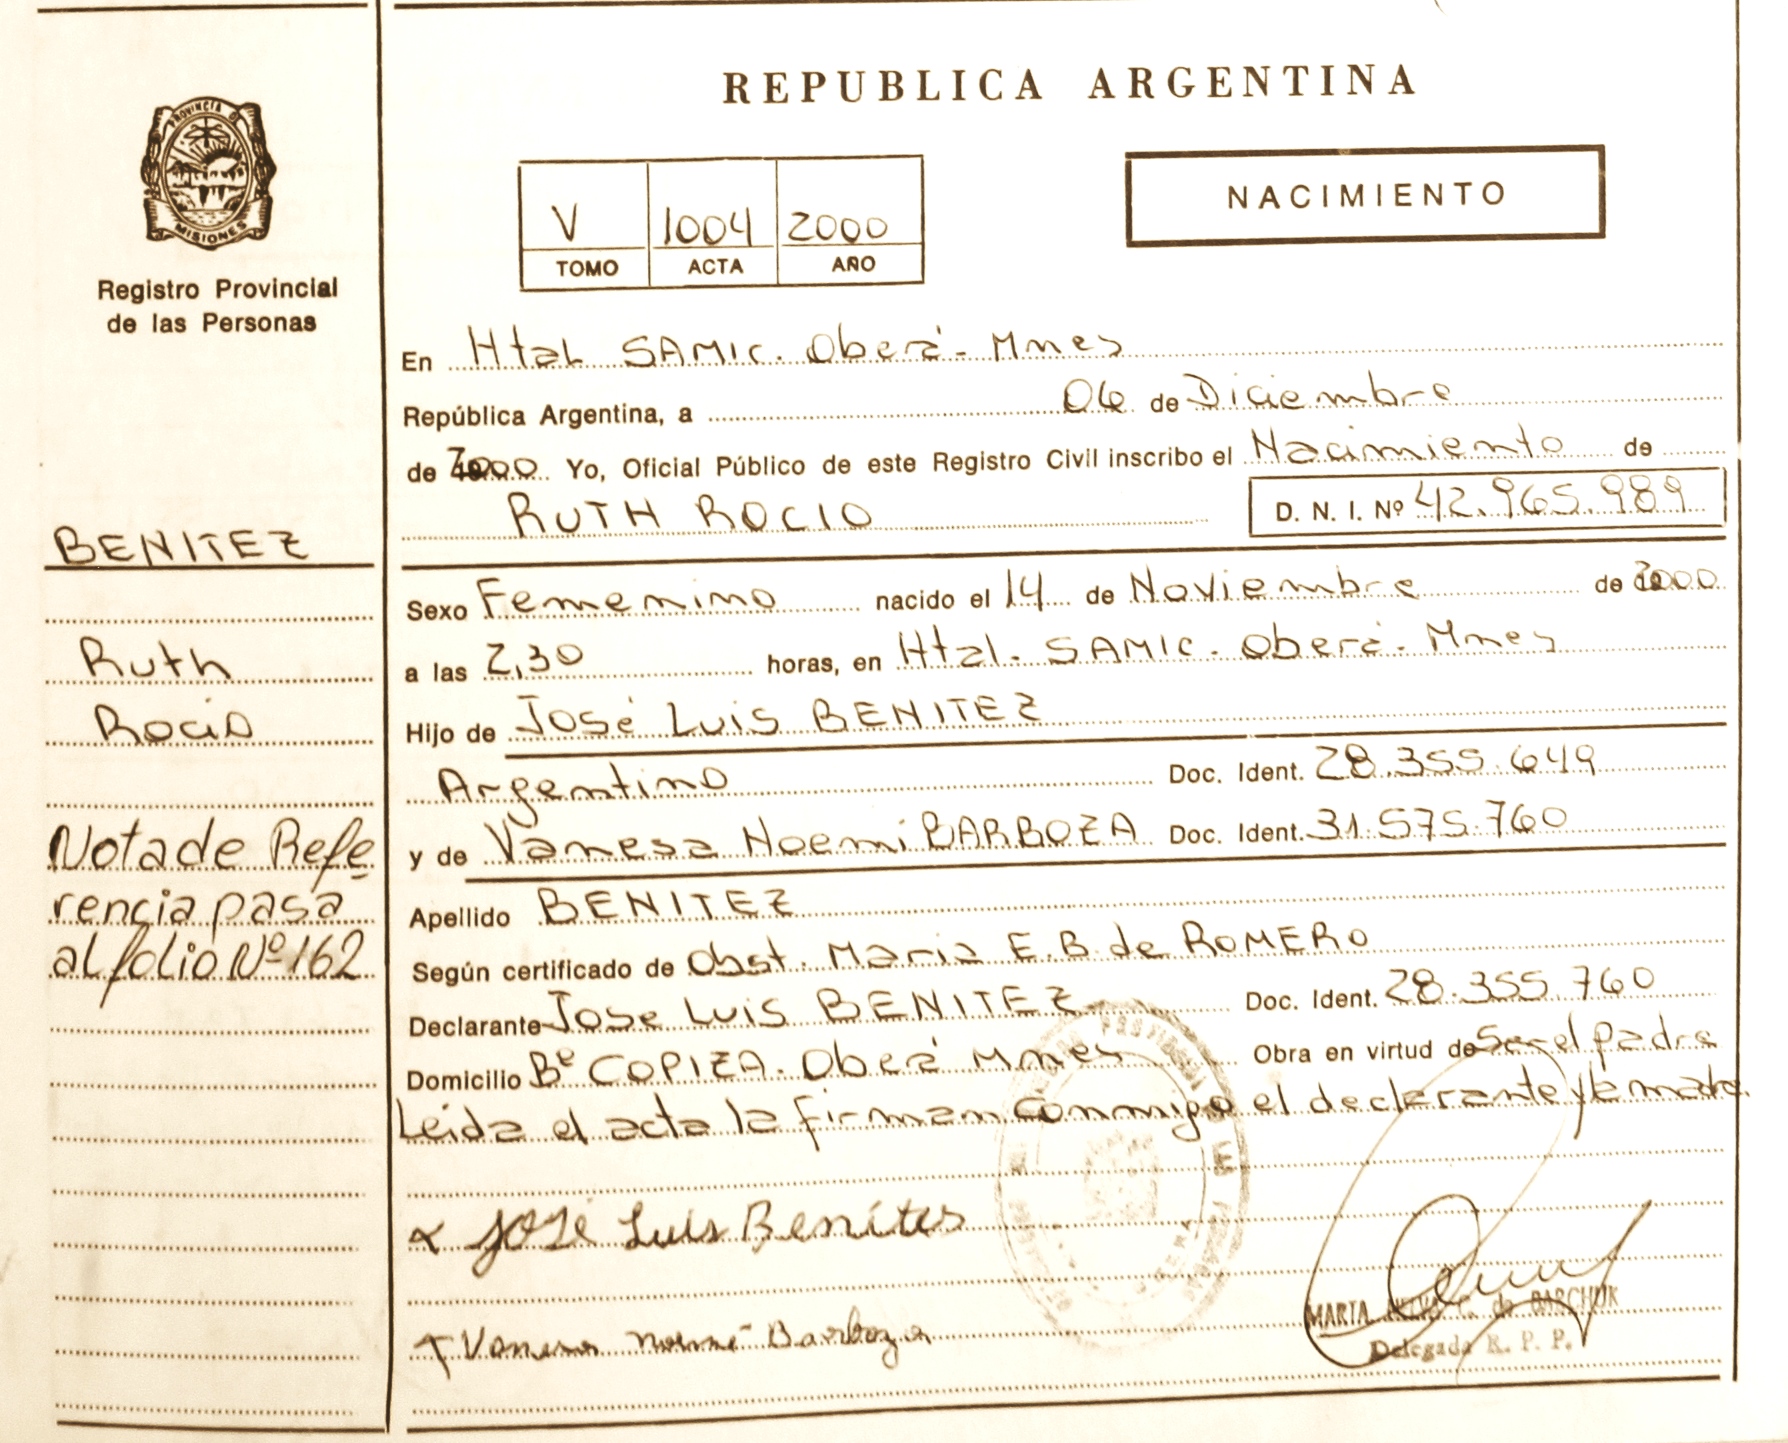 REPUBLICA ARGENTINA
PROVINCIA DE
MISIONES
Registro Provincial
de las Personas
NACIMIENTO
V 1004 2000
TOMO ACTA AÑO
En Htal SAMIC. Oberá - Mnes
República Argentina, a 06 de Diciembre
de 2000 Yo, Oficial Público de este Registro Civil inscribo el Nacimiento de
RUTH ROCIO D. N. I. Nº 42.965.989
BENITEZ
Ruth
Rocio
Nota de Refe
rencia pasa
al folio Nº 162
Sexo Femenino nacido el 14 de Noviembre de 2000
a las 2,30 horas, en Htal. SAMIC. Oberá - Mnes
Hijo de José Luis BENITEZ
Argentino Doc. Ident. 28.355.649
y de Vanesa Noemi BARBOZA Doc. Ident. 31.575.760
Apellido BENITEZ
Según certificado de Obst. Maria E.B. de ROMERO
Declarante Jose Luis BENITEZ Doc. Ident. 28.355 760
Domicilio Bº COPIZA. Oberá Mnes Obra en virtud de Ser el padre
Leida el acta la firman conmigo el declarante y la madre.
JOSE Luis Benítes
Vanesa Noemi Barboza
MARTA C. de BARCHUK
Delegada R. P. P.